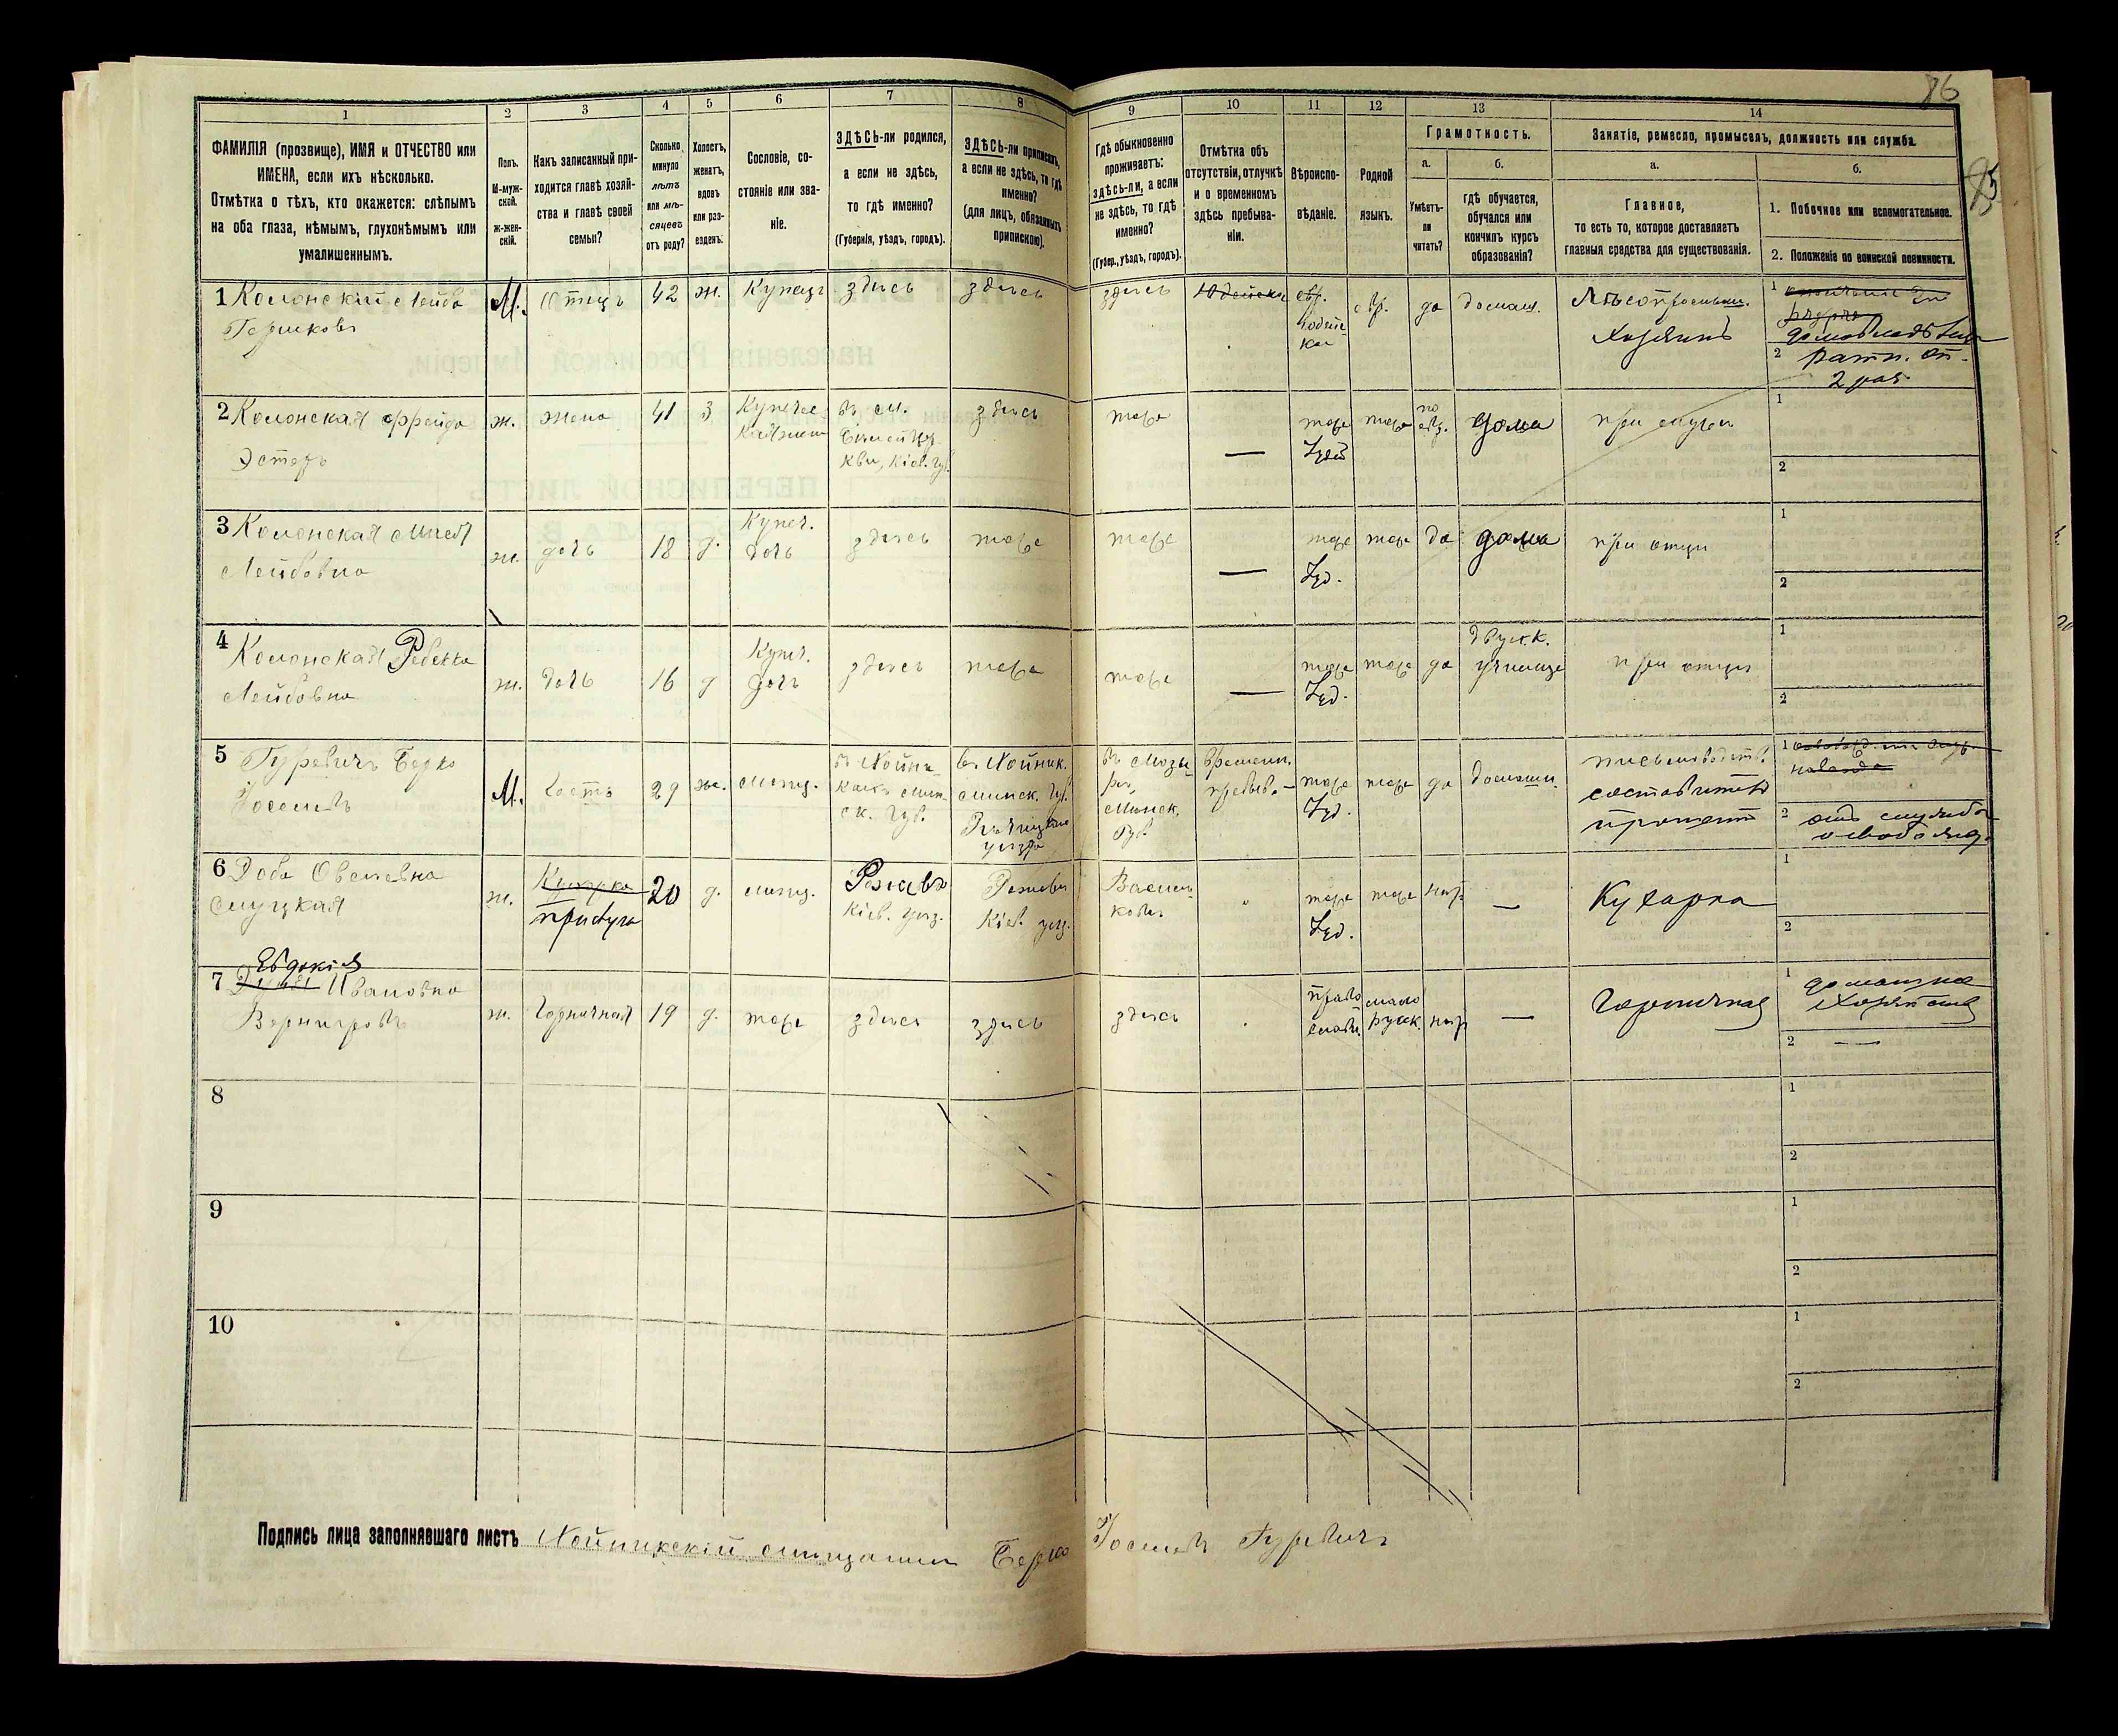 86
95
1
2
3
4
5
6
7
8
9
10
11
12
13
14
ФАМИЛІЯ (прозвище), ИМЯ и ОТЧЕСТВО или
ИМЕНА, если ихъ нѣсколько.
Отмѣтка о тѣхъ, кто окажется: слѣпымъ
на оба глаза, нѣмымъ, глухонѣмымъ или
умалишеннымъ.
Полъ.
М-муж-
ской.
Ж-жен-
скій.
Какъ записанный при-
ходится главѣ хозяй-
ства и главѣ своей
семьи?
Сколько
минуло
лѣтъ
или мѣ-
сяцевъ
отъ роду?
Холостъ,
женатъ,
вдовъ
или раз-
веденъ.
Сословіе, со-
стояніе или зва-
ніе.
ЗДѢСЬ-ли родился,
а если не здѣсь,
то гдѣ именно?
(Губернія, уѣздъ, городъ).
ЗДѢСЬ-ли приписанъ,
а если не здѣсь, то гдѣ
именно?
(для лицъ, обязанныхъ
припиской).
Гдѣ обыкновенно
проживаетъ:
здѣсь-ли, а если
не здѣсь, то гдѣ
именно?
(Губер., уѣздъ, городъ).
Отмѣтка объ
отсутствіи, отлучкѣ
и о временномъ
здѣсь пребыва-
ніи.
Вѣроиспо-
вѣданіе.
Родной
языкъ.
Грамотность.
а.
б.
Умѣетъ-
ли
читать?
гдѣ обучается,
обучался или
кончилъ курсъ
образованія?
Занятіе, ремесло, промыселъ, должность или служба.
а.
б.
Главное,
то есть то, которое доставляетъ
главныя средства для существованія.
1. Побочное или вспомогательное.
2. Положеніе по воинской повинности.
1 Колонскій Лейба
Гершковъ
М.
Отецъ
42
ж.
Купецъ
здѣсь
здѣсь
здѣсь
Юдейска
евр.
Юдейс
кая
евр.
да
домаш.
Лѣсопромыш.
Хозяинъ
1
домовладѣлец
2 ратн. оп.
2 раз.
2 Колонская Фрейда
Эстеръ
ж.
жена
41
З
Купечес
кая жена
въ м.
Бѣлой Цер
кви, Кіев. губ.
здѣсь
тоже
—
тоже
Іуд.
тоже
по
евр.
дома
при мужѣ
1
2
3 Колонская
Лейбовна
ж.
дочь
18
д.
Купеч.
дочь
здѣсь
тоже
тоже
—
тоже
Іуд.
тоже
да
дома
при отцѣ
1
2
4 Колонская Ревекка
Лейбовна
ж.
дочь
16
д
Купеч.
дочь
здѣсь
тоже
тоже
—
тоже
Іуд.
тоже
да
двукл.
училище
при отцѣ
1
2
5 Гуревичъ Берко
Іоселевъ
М.
Гость
29
же.
мѣщ.
въ Хойни-
кахъ Мин-
ск. губ.
въ Хойник.
Минск. губ.
Рѣчицкаго
уѣзда
въ Мозы-
рѣ,
Минск.
губ.
Времен.
пребыв.
тоже
Іуд.
тоже
да
домашн.
письмоводит.
составитель
1
2 отъ службы
освобожд.
6 Доба Овсѣевна
Слуцкая
ж.
Кухарка
прислуга
20
д.
мѣщ.
Ржавъ
Кіев. уѣзд.
Ржавъ
Кіев. уѣзд.
Василь
ковъ.
тоже
Іуд.
тоже
нѣт
—
Кухарка
1
2
Евдокія
7 Ивановна
Вернигровъ
ж.
Горничная
19
д.
тоже
здѣсь
здѣсь
здѣсь
право
слав.
мало
русск.
нѣт
—
Горничная
1 домашнее
хозяйство
2 —
8
1
2
9
1
2
10
1
2
Подпись лица заполнявшаго листъ Хойникскій мѣщанинъ Берко Іоселевъ Гуревичъ